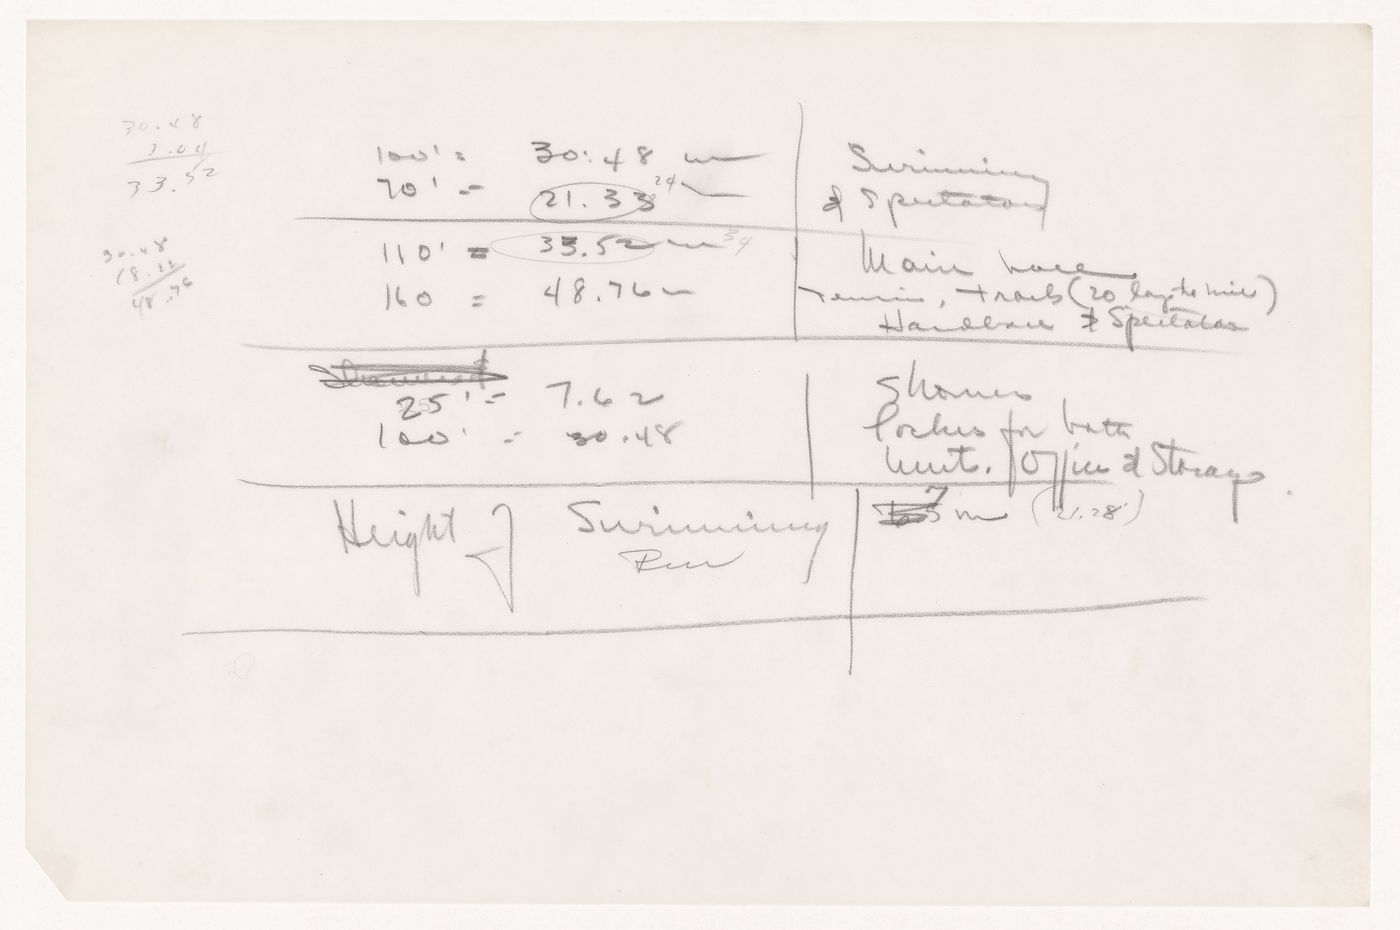 30.48
3.04
33.52
30.48
18.28
48.76
100' = 30.48 m
70' = 21.33 24
Swimming
& Spectators
110' = 33.52 m 34
160 = 48.76 m
Main hall
Tennis, track (20 laps to mile)
Handball & Spectators
25' = 7.62
100' = 30.48
Showers
lockers for both
units. Office & Storage
Height of Swimming
7
5 m (21.28')